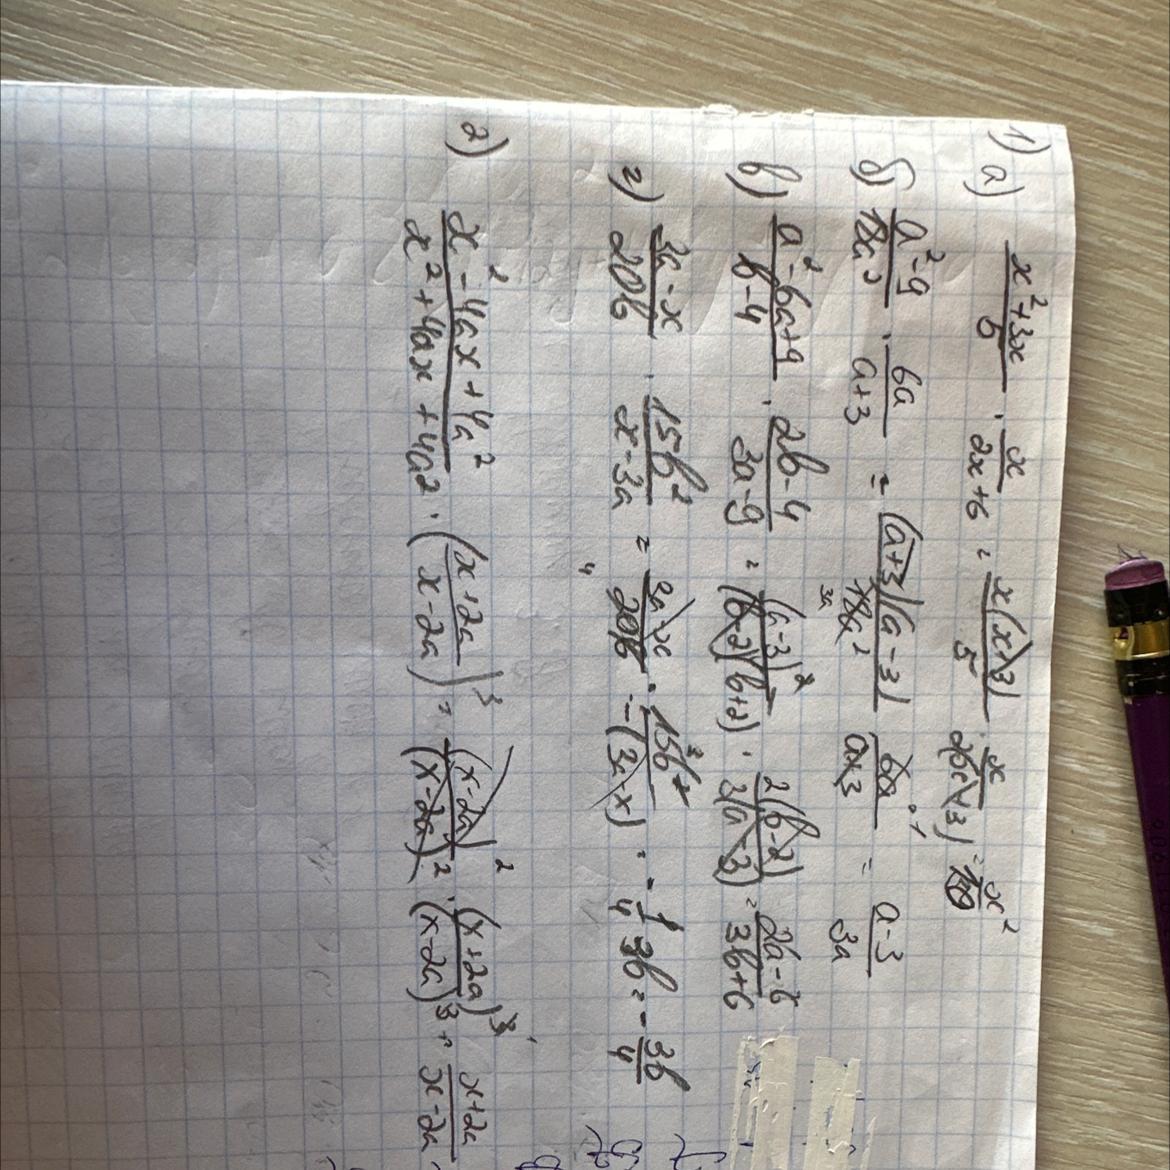 1) а) \frac{x^2+3x}{5} · \frac{x}{2x+6} = \frac{x(x+3)}{5} · \frac{x}{2(x+3)} = \frac{x^2}{10}
б) \frac{a^2-9}{18a^2} · \frac{6a}{a+3} = \frac{(a+3)(a-3)}{18a^2} \frac{6a}{a+3} = \frac{a-3}{3a}
в) \frac{a^2-6a+9}{b-4} · \frac{2b-4}{3a-9} = \frac{(a-3)^2}{(b-2)(b+2)} · \frac{2(b-2)}{3(a-3)} = \frac{2a-6}{3b+6}
г) \frac{3a-x}{20b} · \frac{15b^2}{x-3a} = \frac{3a-x}{20b} · \frac{15b^2}{-(3a-x)} = -\frac{1}{4} 3b = -\frac{3b}{4}
2) \frac{x^2-4ax+4a^2}{x^2+4ax+4a2} · (\frac{x+2a}{x-2a})^3 = \frac{(x-2a)^2}{(x-2a)^2} · \frac{(x+2a)^3}{(x-2a)^3} = \frac{x+2a}{x-2a}